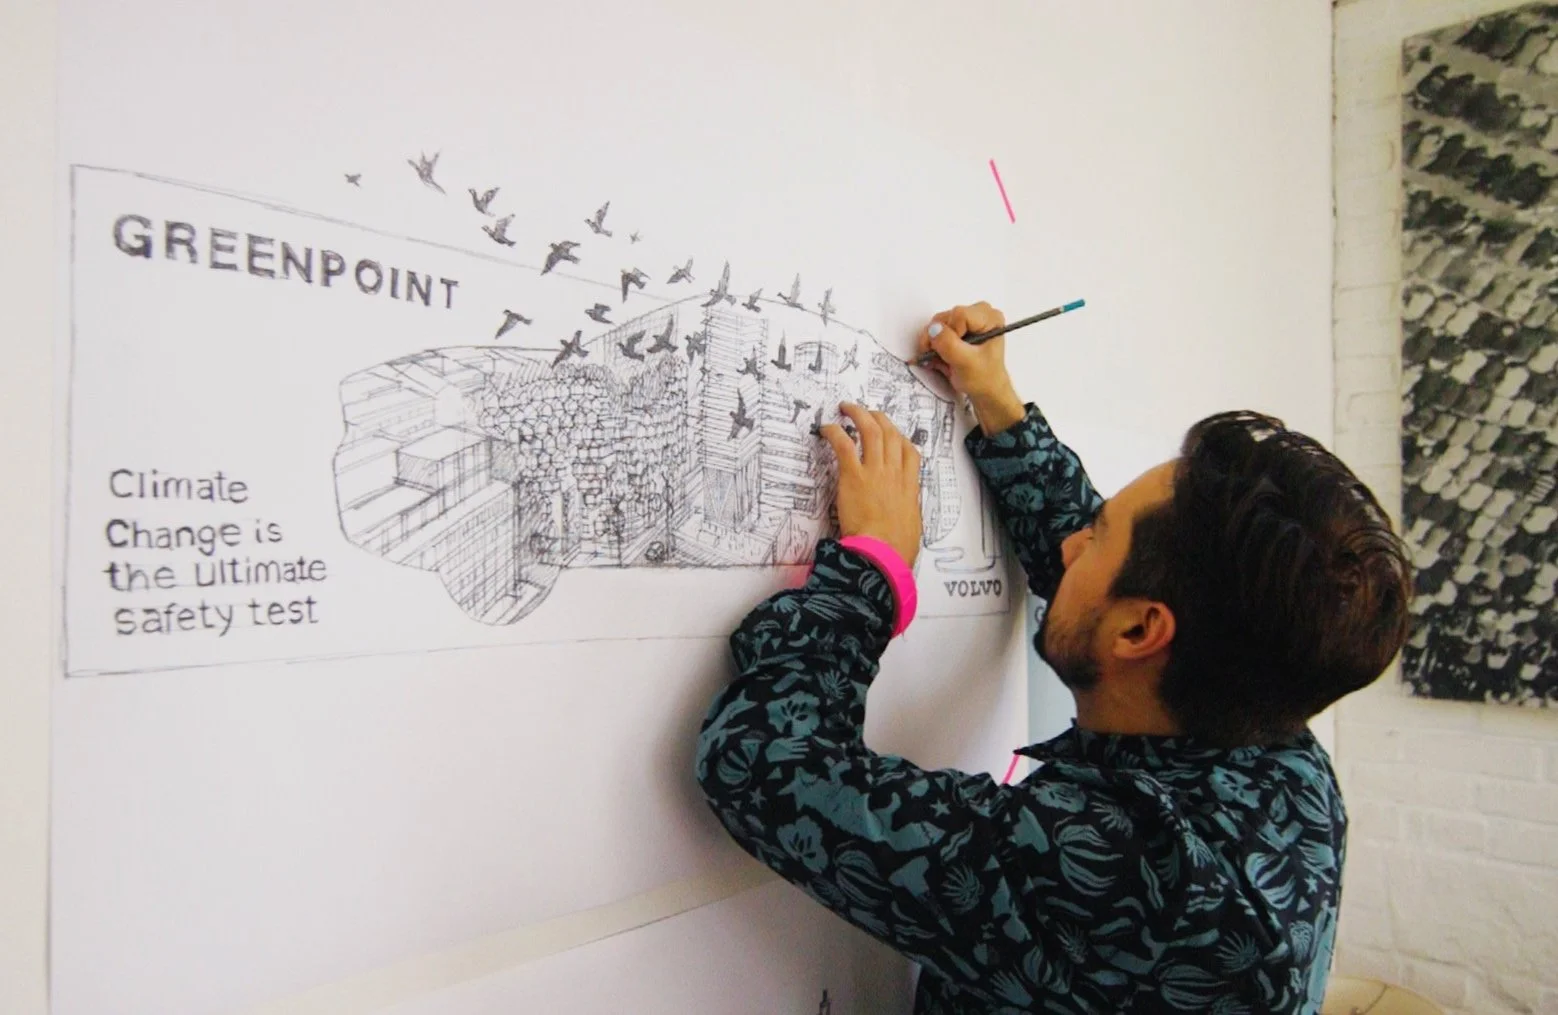 GREENPOINT
Climate
Change is
the ultimate
safety test
VOLVO